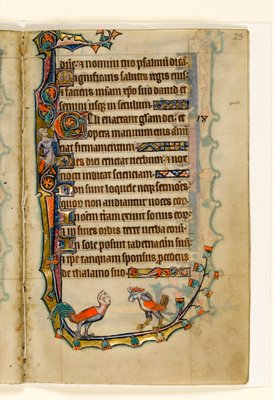 29
dñe: ⁊ nomini tuo psalmũ dicã
Magnificans salutes regis eius
⁊ faciens mĩam xp̃o suo dauid et
semini usq; in seculum.
Celi enarrant gl̃am dei: et
18
opera manuum eius annũ
tiat firmamentum.
Dies diei eructat uerbum: ⁊ nox
nocti indicat scienciam
Non sunt loquele neq; sermões
quoꝝ non audiantur uoces eoꝝ
In oẽm t̃ram exiuit sonus eoꝝ
⁊ in fines orbis terre uerba eoꝝ
In sole posuit tabernaclm̃ suũ
⁊ ip̃e tanquam sponsus p̃cedens
de thalamo suo